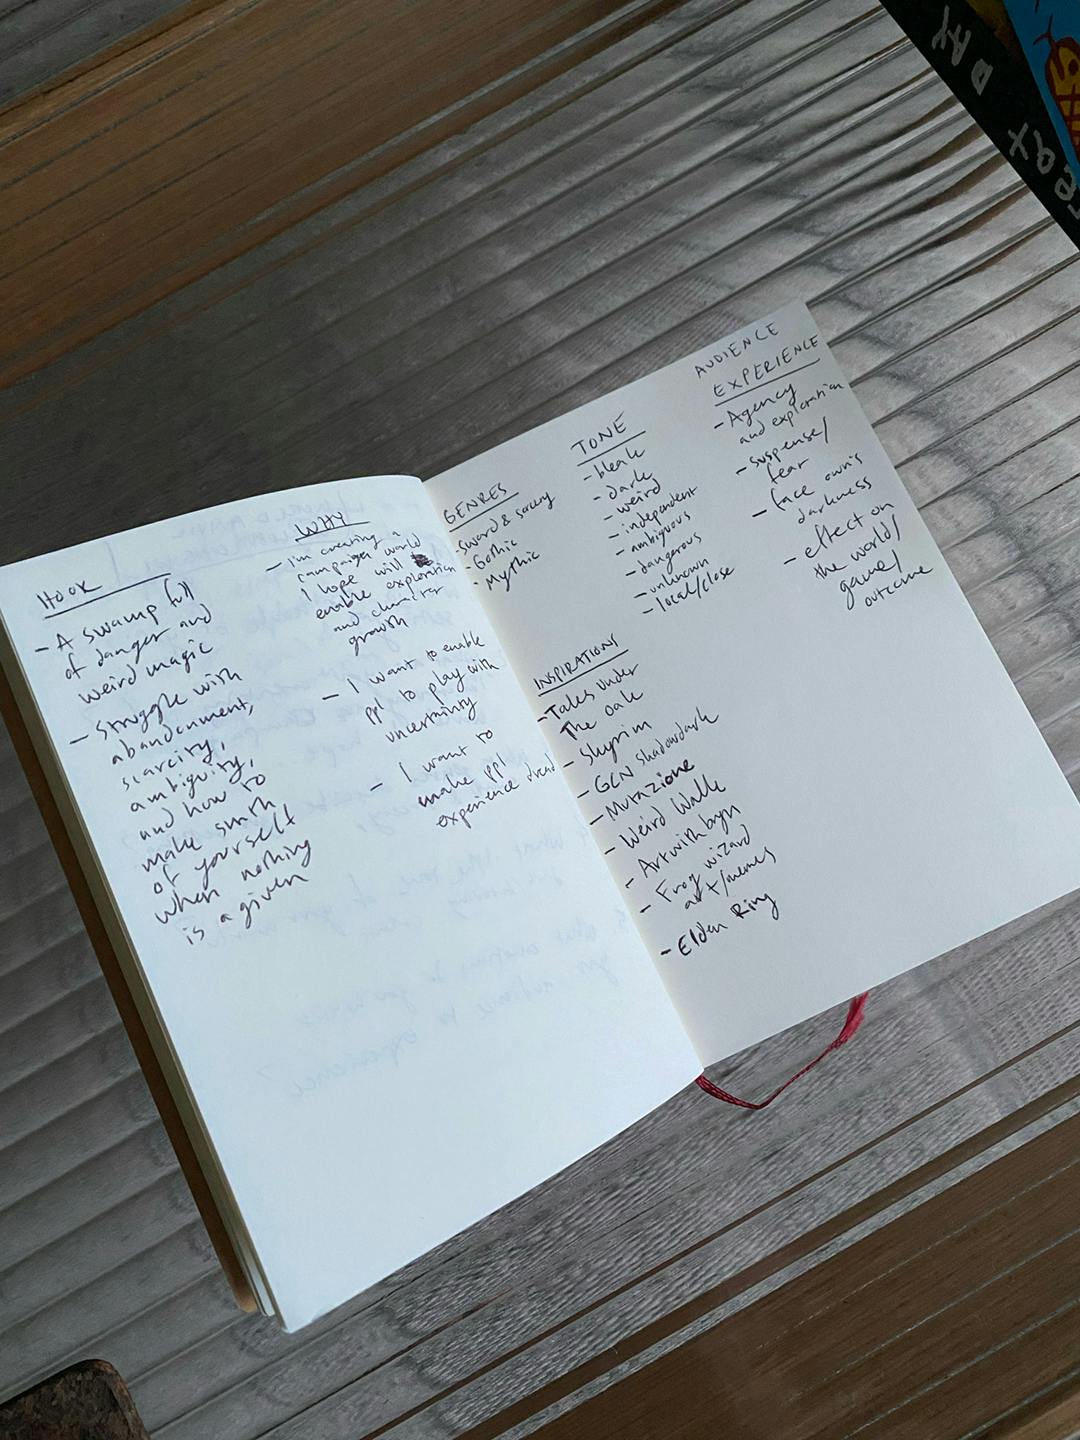 HOOK
- A swamp full
of danger and
weird magic
- Struggle with
abandonment,
scarcity,
ambiguity,
and how to
make smth
of yourself
when nothing
is a given
WHY
- I'm creating a
campaign world
I hope will
enable exploration
and character
growth
- I want to enable
ppl to play with
uncertainty
- I want to
make ppl
experience dread
GENRES
- Sword & sorcery
- Gothic
- Mythic
TONE
- bleak
- dark
- weird
- independent
- ambiguous
- dangerous
- unknown
- local/close
AUDIENCE
EXPERIENCE
- Agency
and exploration
- suspense/
fear
- face own's
darkness
- effect on
the world/
game/
outcome
INSPIRATIONS
- Tales Under
The oak
- Skyrim
- GCN Shadowdark
- Mutazione
- Weird Walk
- Artwithbyn
- Frog wizard
art/memes
- Elden Ring
DAY